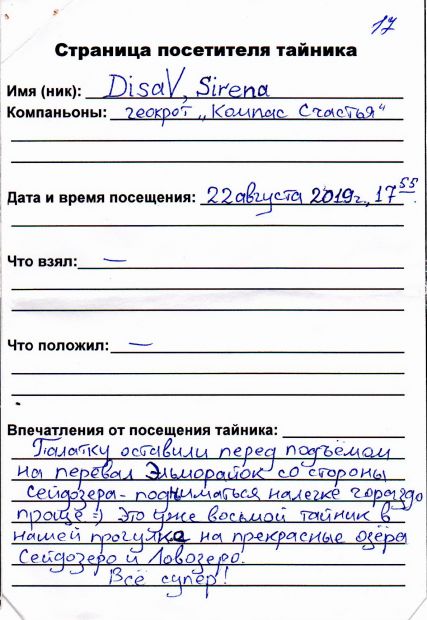 17
Страница посетителя тайника
Имя (ник): DisaV, Sirena
Компаньоны: геокрот „Компас Счастья"
Дата и время посещения: 22 августа 2019г., 17 55
Что взял: —
Что положил: —
Впечатления от посещения тайника:
Палатку оставили перед подъёмом
на перевал Эльморайок со стороны
Сейдозера - подниматься налегке гораздо
проще :) Это уже восьмой тайник в
нашей прогулке на прекрасные озёра
Сейдозеро и Ловозеро.
Всё супер!